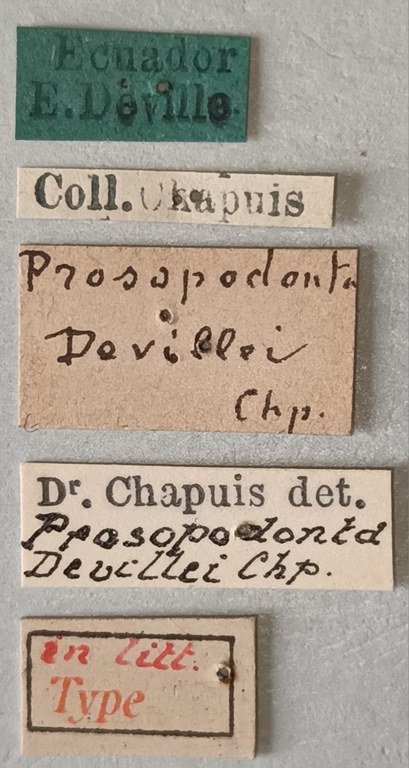 Ecuador
E. Deville.
Coll. Chapuis
Prosopodonta
Devillei
Chp.
Dr. Chapuis det.
Prosopodonta
Devillei Chp.
in litt.
Type